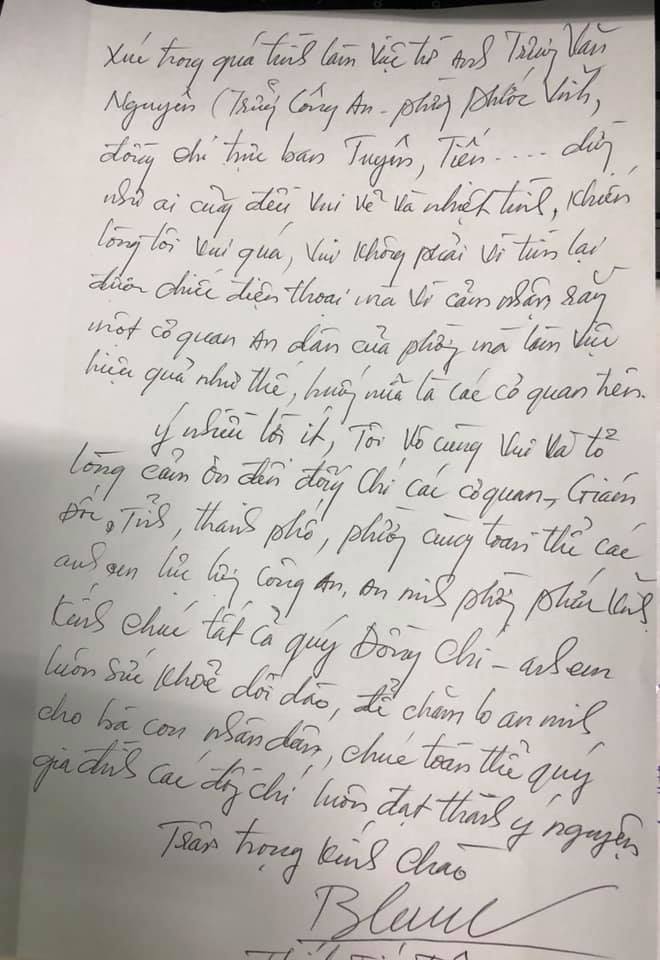 xúc trong quá trình làm việc từ Anh Trương Văn
Nguyên (Trưởng Công An - phường phước Vĩnh,
đồng chí trực ban Tuyên, Tiến .... dường
như ai cũng đều vui vẻ và nhiệt tình, khiến
lòng tôi vui quá, vui không phải vì tìm lại
được chiếc điện thoại mà vì cảm nhận rằng
một cơ quan An dân của phường mà làm việc
hiệu quả như thế, huống nữa là các cơ quan trên.
ý nhiều lời ít, Tôi vô cùng vui và tỏ
lòng cảm ơn đến đồng chí các cơ quan, Giám
Đốc, Tỉnh, thành phố, phường cùng toàn thể các
anh em lực lượng Công An, An ninh phường phước Vĩnh
Kính chúc tất cả quý Đồng Chí - anh em
luôn sức khoẻ dồi dào, để chăm lo an ninh
cho bà con nhân dân, chúc toàn thể quý
gia đình các đồng chí luôn đạt thành ý nguyện
Trân trọng kính chào